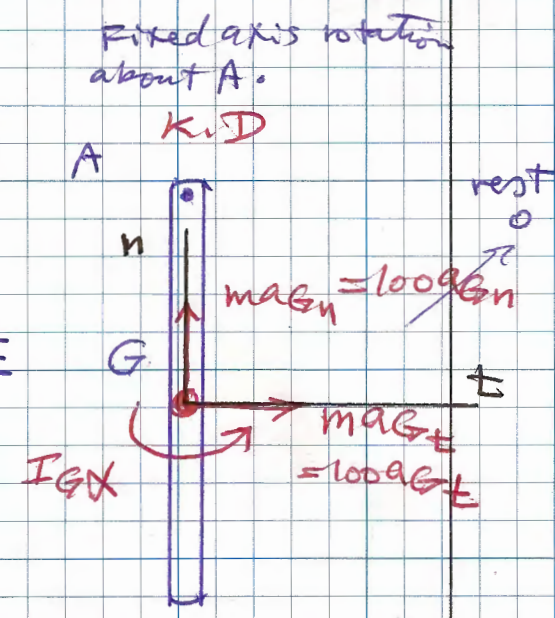 Fixed axis rotation
about A.
K.D
A
rest
0
n
maGn = 100aGn
G
t
maGt
= 100aGt
IGα